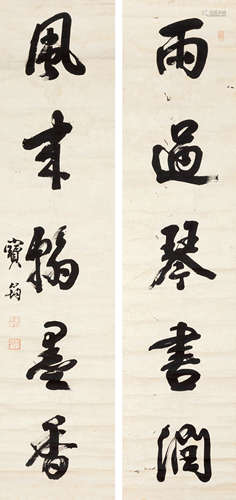 雨過琴書潤
風來翰墨香
寶鋆